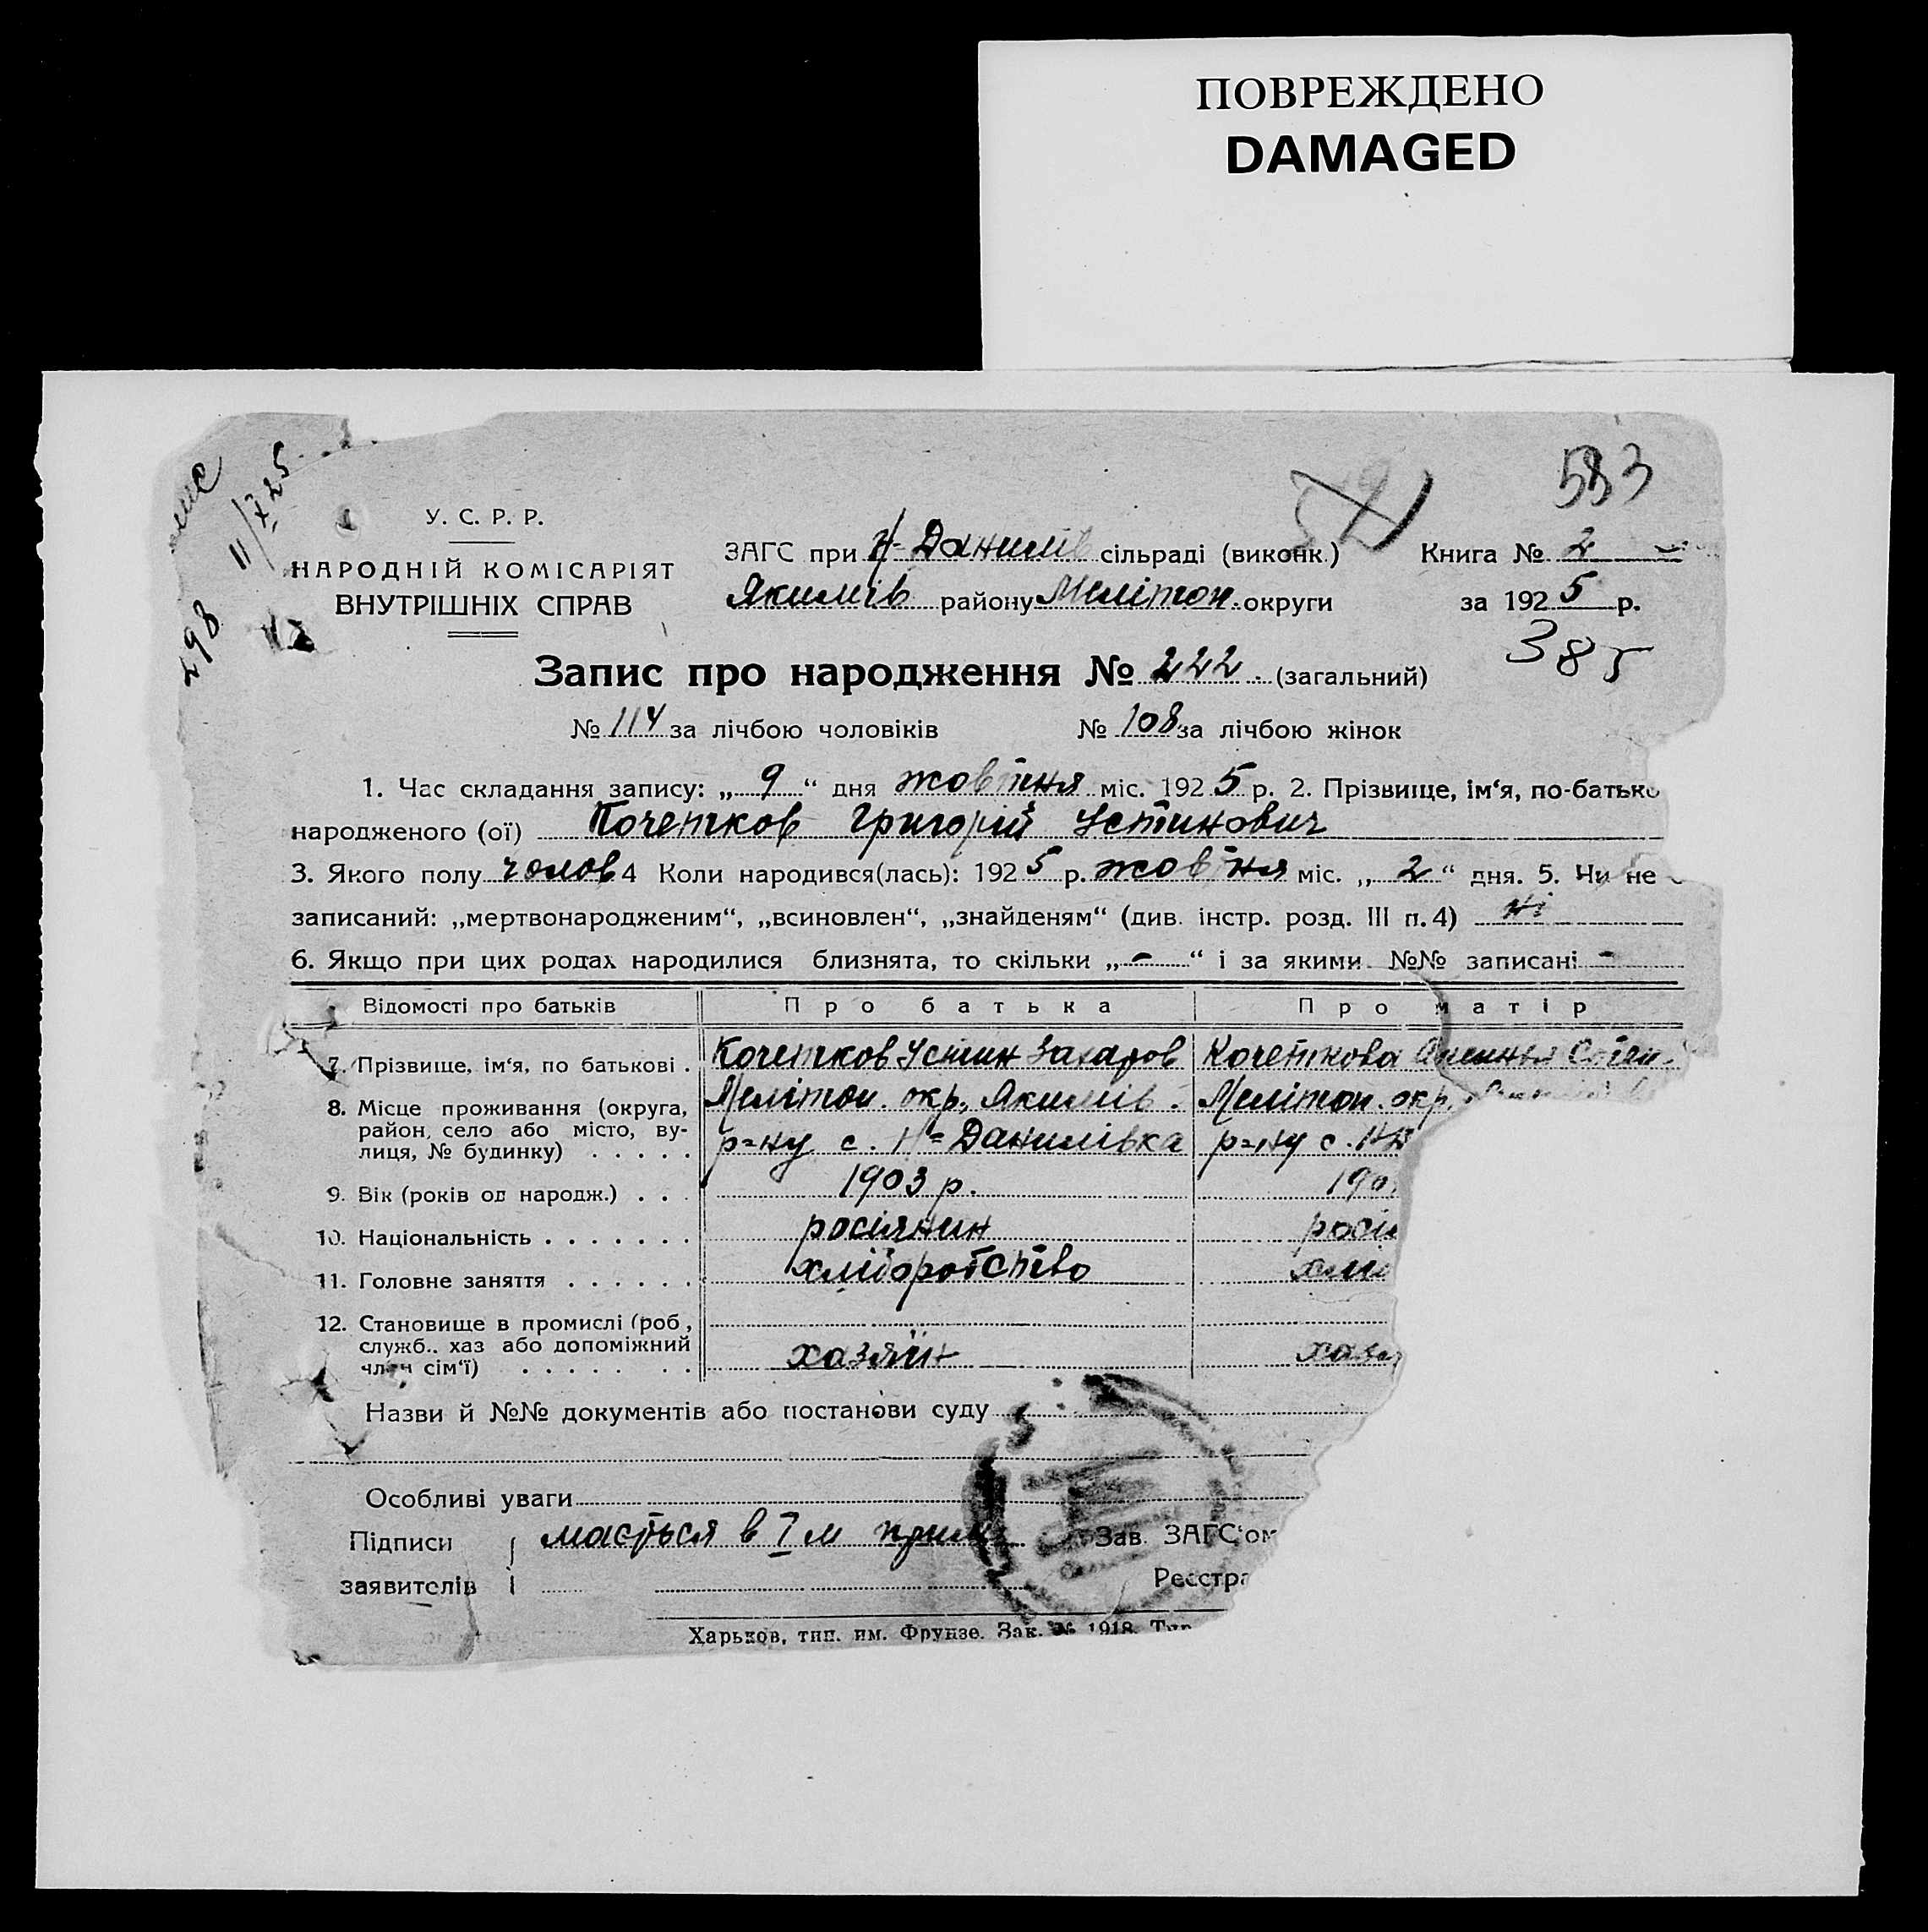 ПОВРЕЖДЕНО
DAMAGED
11/X 25
298
583
У. С. Р. Р.
НАРОДНІЙ КОМІСАРІЯТ
ВНУТРІШНІХ СПРАВ
ЗАГС при Н-Данилів сільраді (виконк.)
Якимів району Мелітоп. округи
Книга № 2
за 1925 р.
385
Запис про народження № 222. (загальний)
№ 114 за лічбою чоловіків № 108 за лічбою жінок
1. Час складання запису: „ 9 “ дня жовтня міс. 1925 р. 2. Прізвище, ім‘я, по-батько
народженого (ої) Кочетков Григорій Устинович
3. Якого полу чолов 4 Коли народився(лась): 1925 р. жовтня міс. „ 2 “ дня. 5. Чи не
записаний: „мертвонародженим“, „всиновлен“, „знайденям“ (див. інстр. розд. III п. 4) ні
6. Якщо при цих родах народилися близнята, то скільки „ - “ і за якими №№ записані -
Відомості про батьків Про батька Про матір
7. Прізвище, ім‘я, по батькові . Кочетков Устин Захаров Кочеткова
8. Місце проживання (округа, Мелітоп. окр., Якимів. Мелітоп. окр.
район, село або місто, ву- р=ну с. Н=Данилівка р=ну с.
лиця, № будинку) . . . . .
9. Вік (років од народж.) . . . 1903 р. 190
10. Національність . . . . . . . росіянин росія
11. Головне заняття . . . . . . хліборобство хлі
12. Становище в промислі (роб.,
служб., хаз або допоміжний
член сім‘ї) . . . . . . . хазяїн хазя
Назви й №№ документів або постанови суду
Особливі уваги
Підписи мається в I м прим Зав. ЗАГС‘ом
заявителів Реєстра
Харьков, тип. им. Фрунзе. Зак. № 1918. Тир